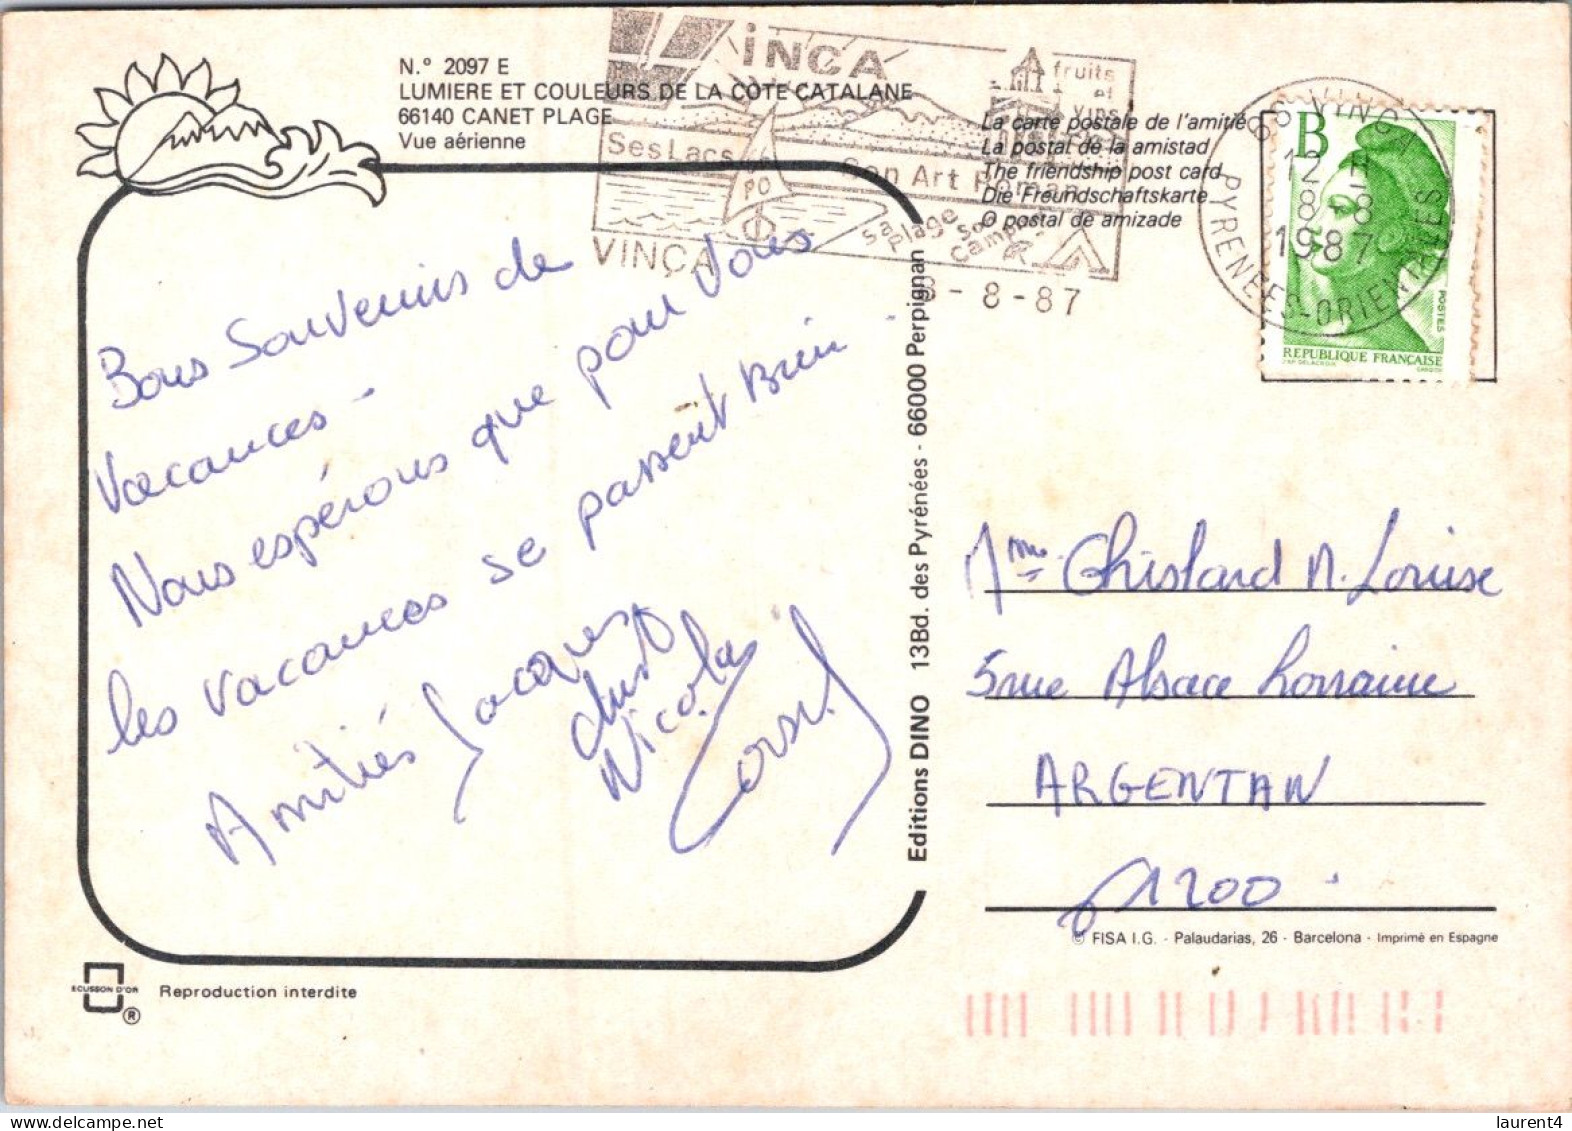 N.° 2097 E
LUMIERE ET COULEURS DE LA CÔTE CATALANE
66140 CANET PLAGE
Vue aérienne
VINCA
fruits
et
vins
Ses Lacs
Son Art Roman
Sa Plage
Son
Camping
VINÇA
8-8-87
La carte postale de l'amitié
La postal de la amistad
The friendship post card
Die Freundschaftskarte
O postal de amizade
66 VINCA
12 H
8-8
1987
PYRENEES-ORIENTALES
B
POSTES
REPUBLIQUE FRANÇAISE
Bons Souvenirs de
Vacances -
Nous espérons que pour vous
les vacances se passent Bien
Amitiés Jacques
Nicolas
Editions DINO 13Bd. des Pyrénées - 66000 Perpignan
Mme Ghislard M. Louise
5 rue Alsace Lorraine
ARGENTAN
61200
© FISA I.G. - Palaudarias, 26 - Barcelona - Imprimé en Espagne
ECUSSON D'OR
® Reproduction interdite
www.delcampe.net
laurent4